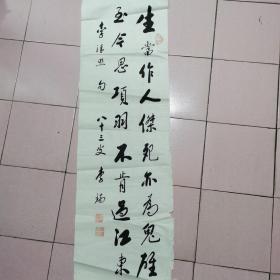 生當作人傑死亦為鬼雄
至今思項羽不肯過江東
李清照 句
八十三叟 李